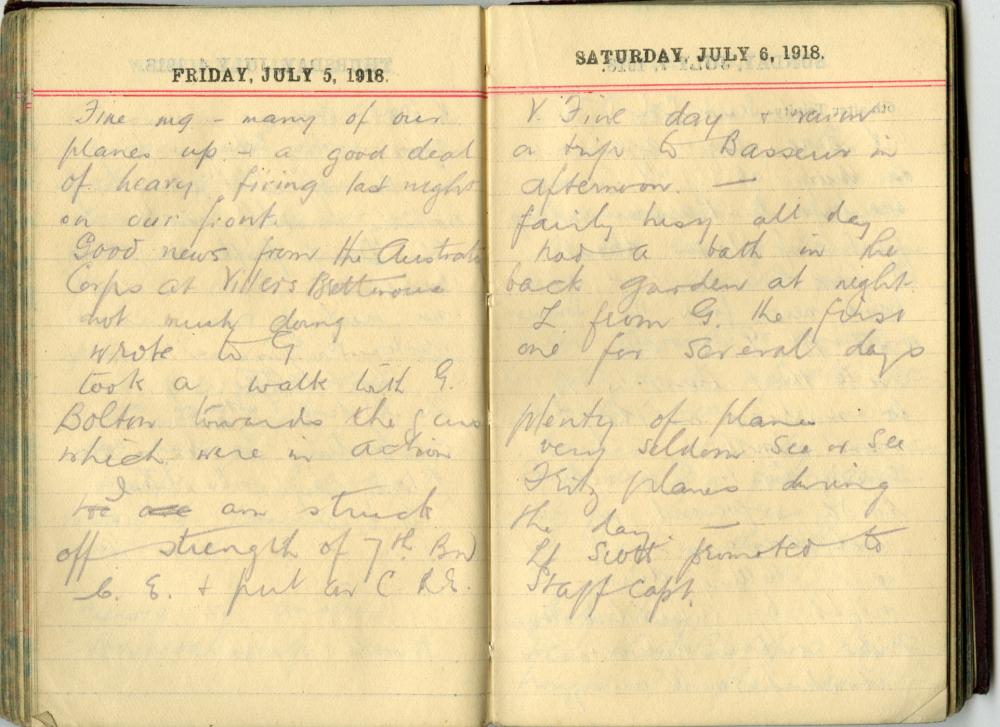 FRIDAY, JULY 5, 1918.
Fine mg - many of our
planes up - a good deal
of heavy firing last night
on our front
Good news from the Australi
Corps at Villers Brettenoue
not much doing
wrote to G
took a walk with G.
Bolton towards the guns
which were in action
I
am struck
off strength of 7th Bn
C. E. + put on C R.E.
SATURDAY, JULY 6, 1918.
V. Fine day + warm
a trip to Basseux in
afternoon. —
fairly busy all day
had a bath in the
back garden at night.
L. from G. the first
one for several days
plenty of planes
very seldom see or see
Fritz planes during
the day. —
Lt Scott promoted to
Staff Capt.